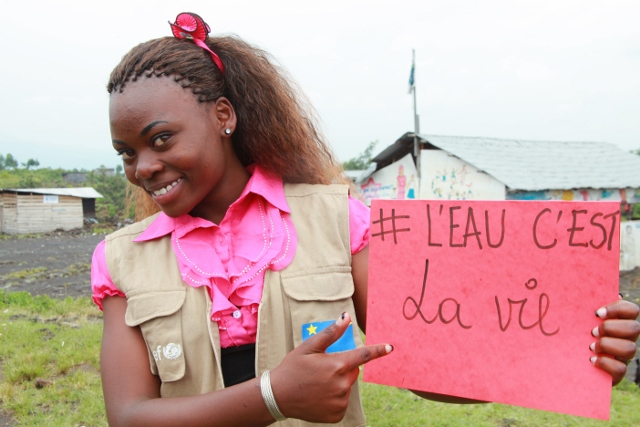 # L'EAU C'EST
La vie